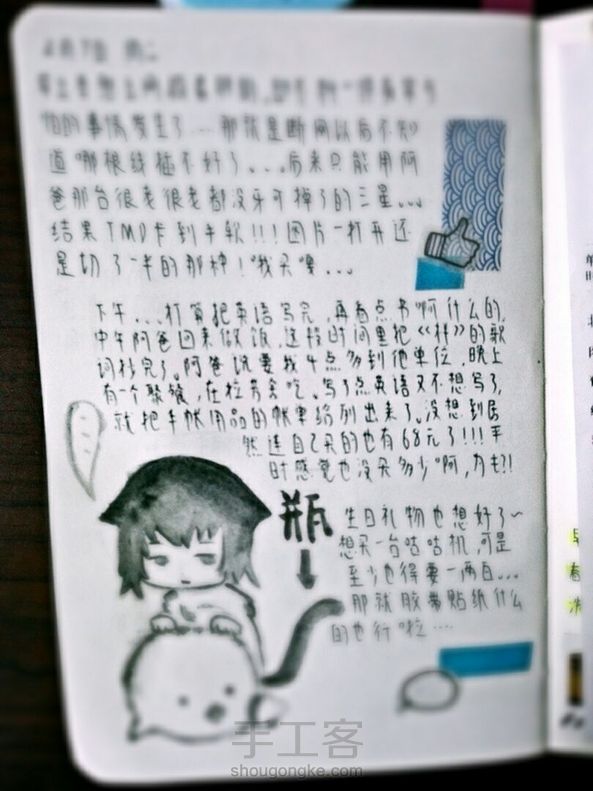 4月7日 周二
怕的事情发生了...那就是断网以后不知
道哪根线插不好了....后来只能用阿
爸那台很老很老都没牙可掉了的三星...
结果TMD卡到手软!!!图片一打开还
是切了一半的那种!我买嘎...
下午...打算把英语写完,再看点书啊什么的,
中午阿爸回来做饭,这段时间里把《样》的歌
词抄完了。阿爸说要我4点多到他单位,晚上
有一个聚餐,在拉芳舍吃。写了点英语又不想写了,
就把手帐用品的帐单给列出来了。没想到居
然连自己买的也有68元了!!!平
时感觉也没买多少啊,为卡?!
瓶
生日礼物也想好了~
想买一台咕咕机,可是
至少也得要一两百...
那就胶带贴纸什么
的也行啦....
手工客
shougongke.com